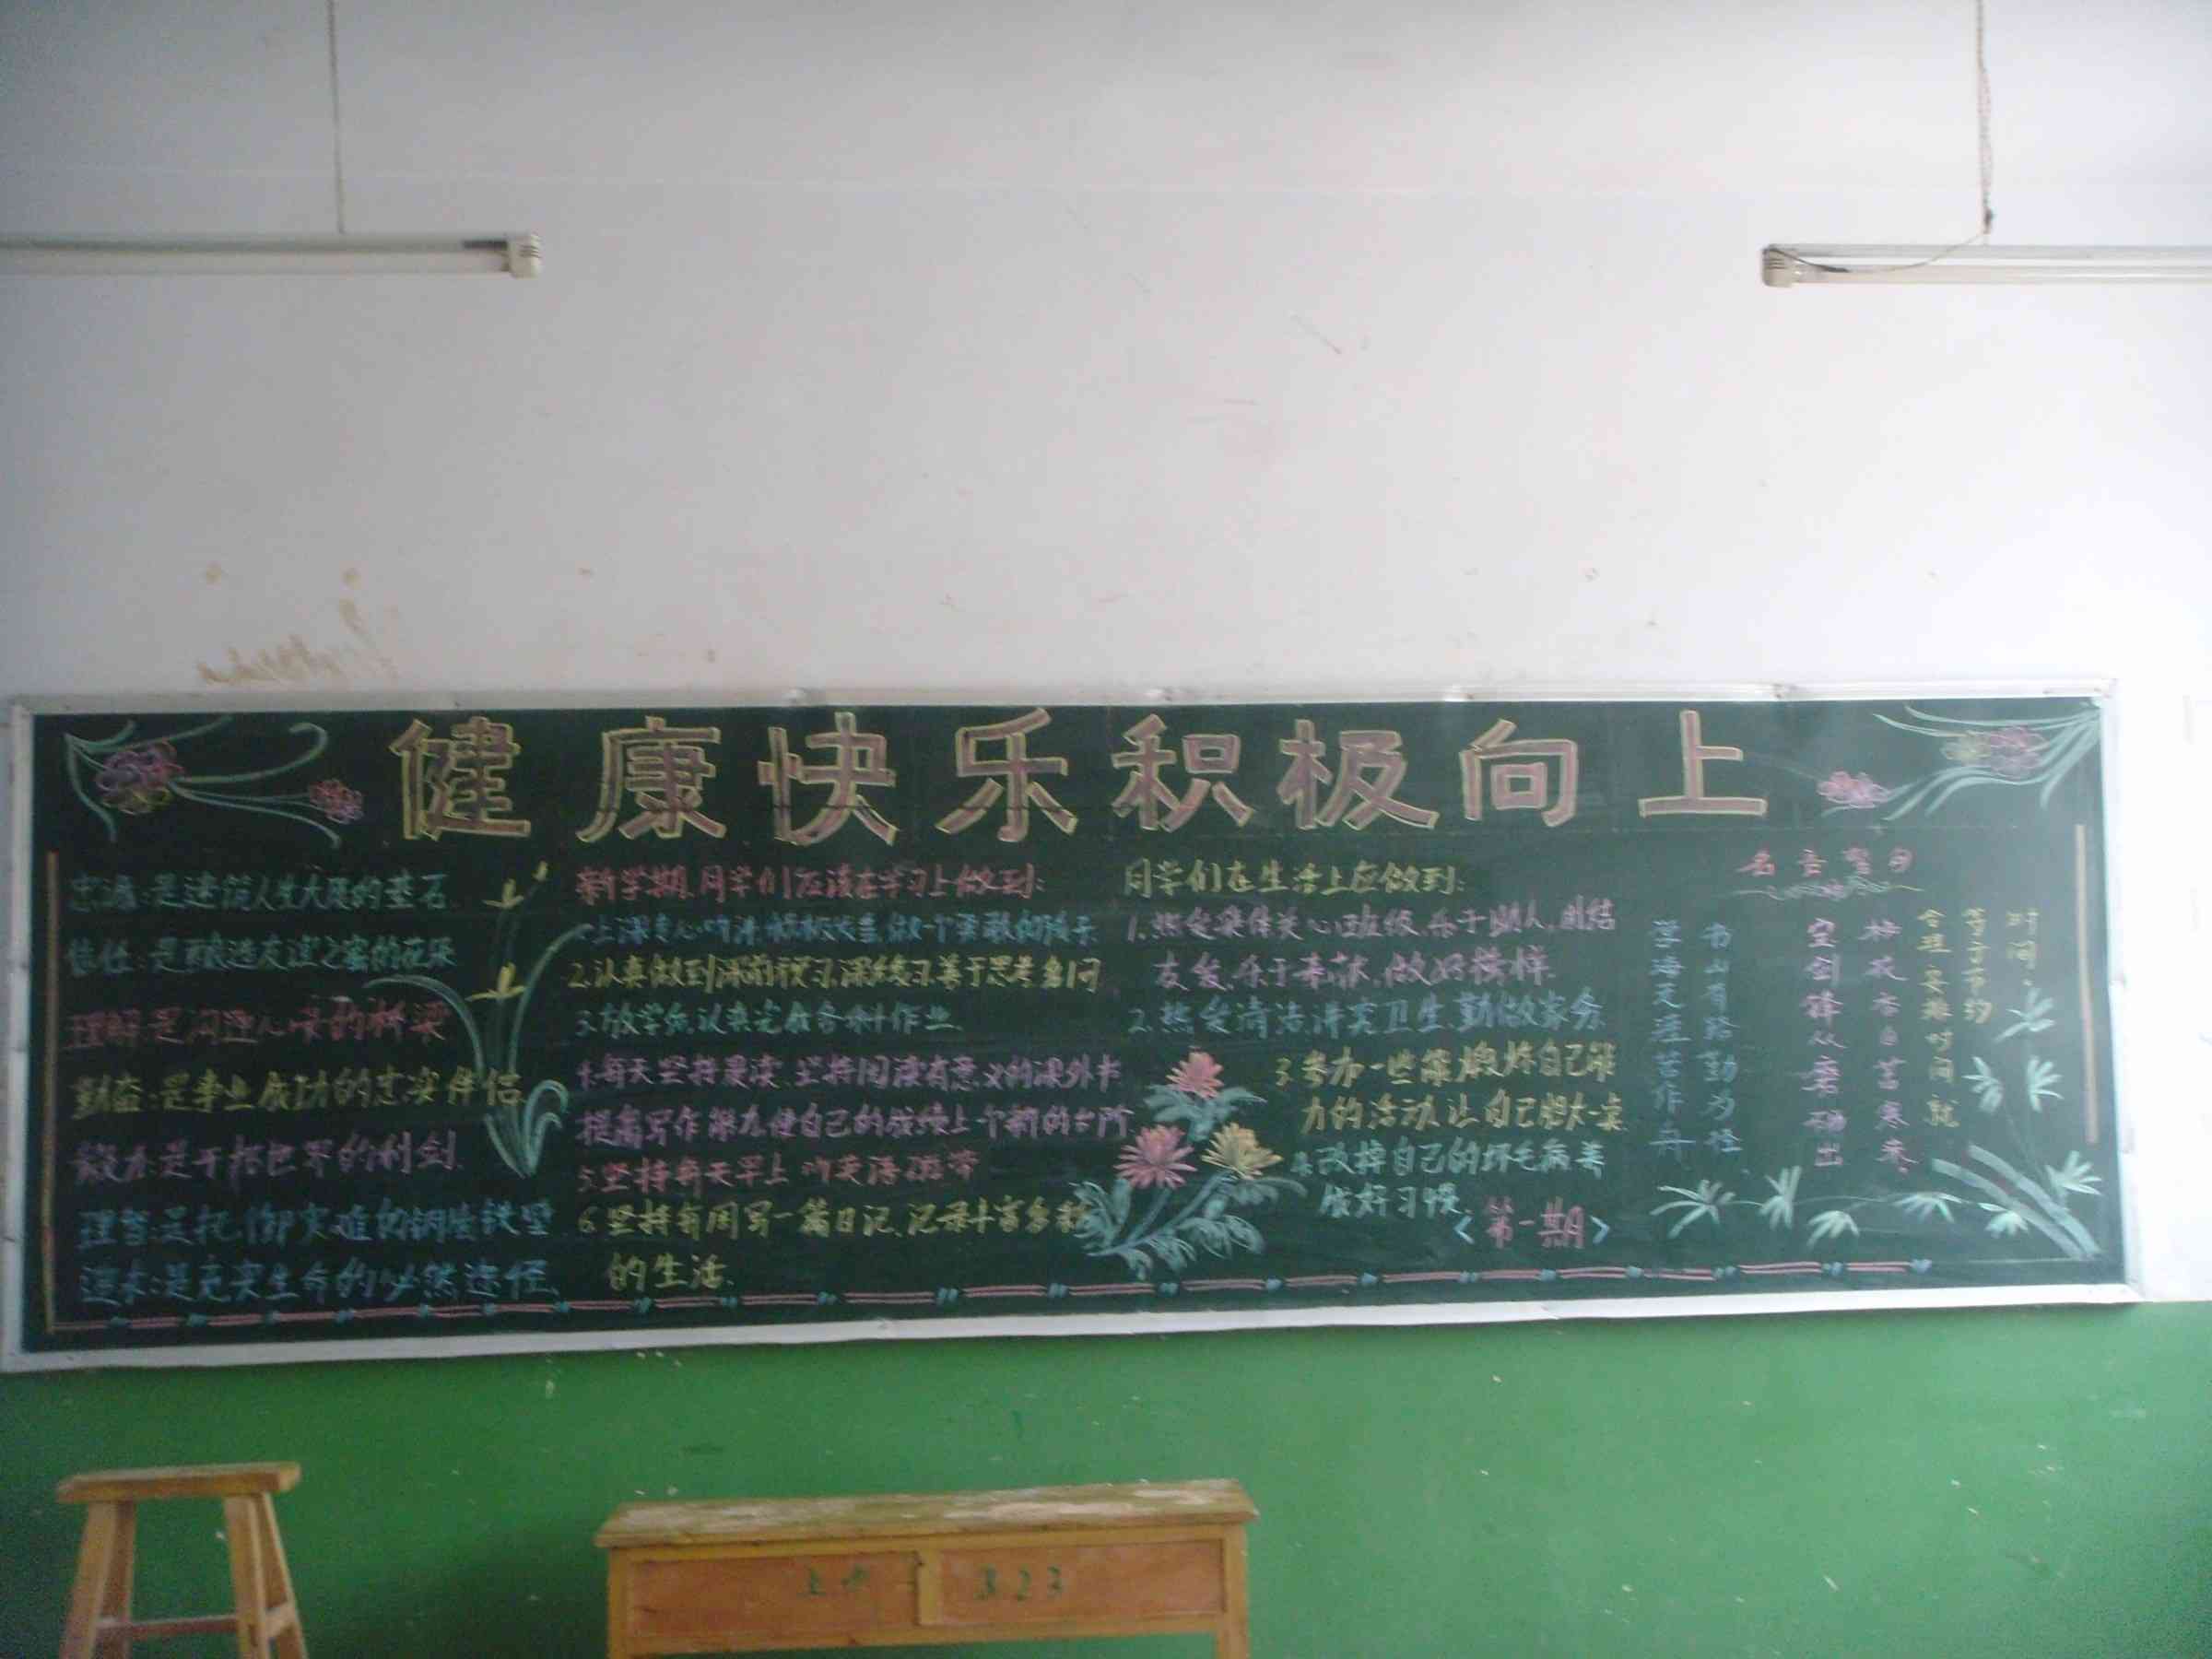 健康快乐积极向上
忠诚:是建筑人生大厦的基石.
信任:是酿造友谊之蜜的花朵
理解:是沟通心灵的桥梁
勤奋:是事业成功的忠实伴侣.
毅力:是干.世界的利剑.
理智:是抵御灾难的铜墙铁壁
追求:是充实生命的必然途径.
新学期,同学们应该在学习上做到:
1.上课专心听讲,积极发言,做一个勇敢的孩子.
2.认真做到课前预习,课后练习,善于思考多问
3.放学后,认真完成各科作业.
4.每天坚持晨读,坚持阅读有意义的课外书
提高写作能力,使自己的成绩上一个新的台阶.
5.坚持每天早上听英语磁带
6.坚持每周写一篇日记,记录丰富多彩
的生活.
同学们在生活上应做到:
1.热爱集体关心班级,乐于助人,团结
友爱,乐于奉献,做好榜样.
2.热爱清洁,讲究卫生,勤做家务.
3.参加一些能锻炼自己能
力的活动,让自己胆大一点
4.改掉自己的坏毛病,养
成好习惯.
<第一期>
名言警句
时间.
等于节约
合理安排时间就
梅花香自苦寒来.
宝剑锋从磨砺出
书山有路勤为径.
学海无涯苦作舟
323